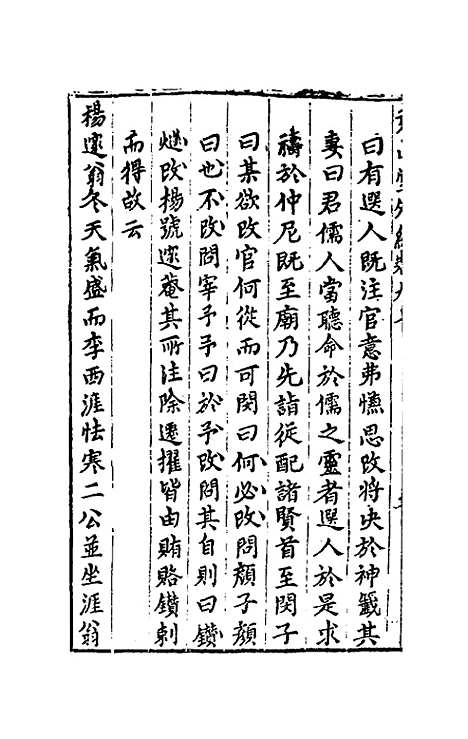 曰有選人既注官意弗愜思改將央於神籤其
妻曰君儒人當聽命於儒之靈者選人於是求
禱於仲尼既至廟乃先詣從配諸賢首至閔子
曰某欲改官何從而可閔曰何必改問顏子顏
曰也不改問宰予予曰於予改問其自則曰鑽
燧改楊號邃菴其所注除遷擢皆由賄賂鑽刺
而得故云
楊邃翁冬天氣盛而李西涯怯寒二公並坐涯翁